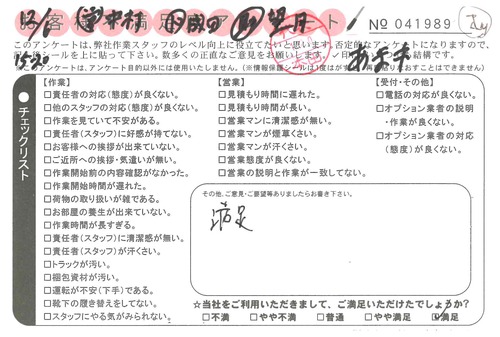 お客様満足度アンケート
No 041989
このアンケートは、弊社作業スタッフのレベル向上に役立てたいと思います。否定的なアンケートになりますので、
12/6 中村 成田 望月
15:30
【作業】
□責任者の対応(態度)が良くない。
□他のスタッフの対応(態度)が良くない。
□作業を見ていて不安がある。
□責任者(スタッフ)に好感が持てない。
□お客様への挨拶が出来ていない。
□ご近所への挨拶・気遣いが無い。
□作業開始前の内容確認がなかった。
□作業開始時間が遅れた。
□荷物の取り扱いが雑である。
□お部屋の養生が出来ていない。
□作業時間が長すぎる。
□責任者(スタッフ)に清潔感が無い。
□責任者(スタッフ)が汗くさい。
□トラックが汚い。
□梱包資材が汚い。
□運転が不安(下手)である。
□靴下の履き替えをしてない。
□スタッフにやる気がみられない。
【営業】
□見積り時間に遅れた。
□見積もり時間が長い。
□営業マンに清潔感が無い。
□営業マンが煙草くさい。
□営業マンが汗くさい。
□営業態度が良くない。
□営業の説明と作業が一致してない。
【受付・その他】
□電話の対応が良くない。
□オプション業者の説明
・作業が良くない。
□オプション業者の対応
(態度)が良くない。
●チェックリスト
その他、ご意見・ご要望等ありましたらお書き下さい。
満足
☆当社をご利用いただきまして、ご満足いただけたでしょうか?
□不満 □やや不満 □普通 □やや満足 ☑満足